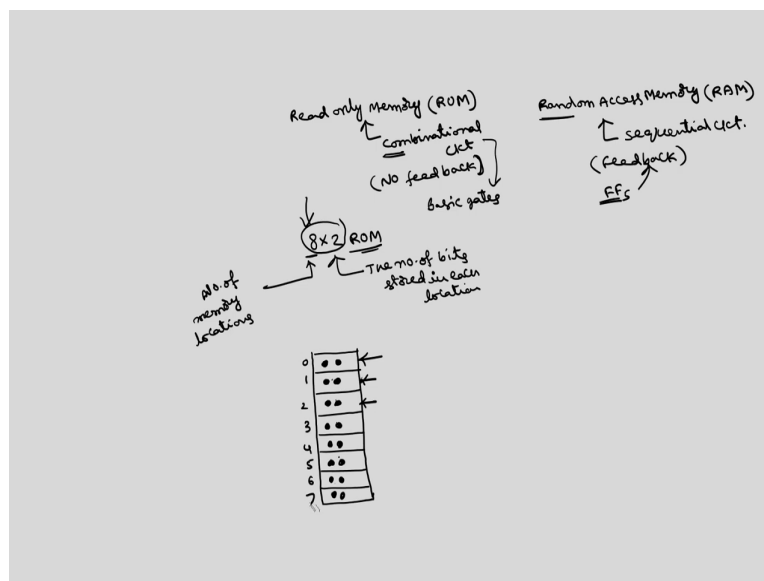 Read only Memory (ROM)
Combinational
Ckt
(No feedback)
Basic gates
Random Access Memory (RAM)
sequential Ckt.
(Feedback)
FFs
8x2 ROM
No. of
memory
locations
The no. of bits
stored in each
location
0
1
2
3
4
5
6
7